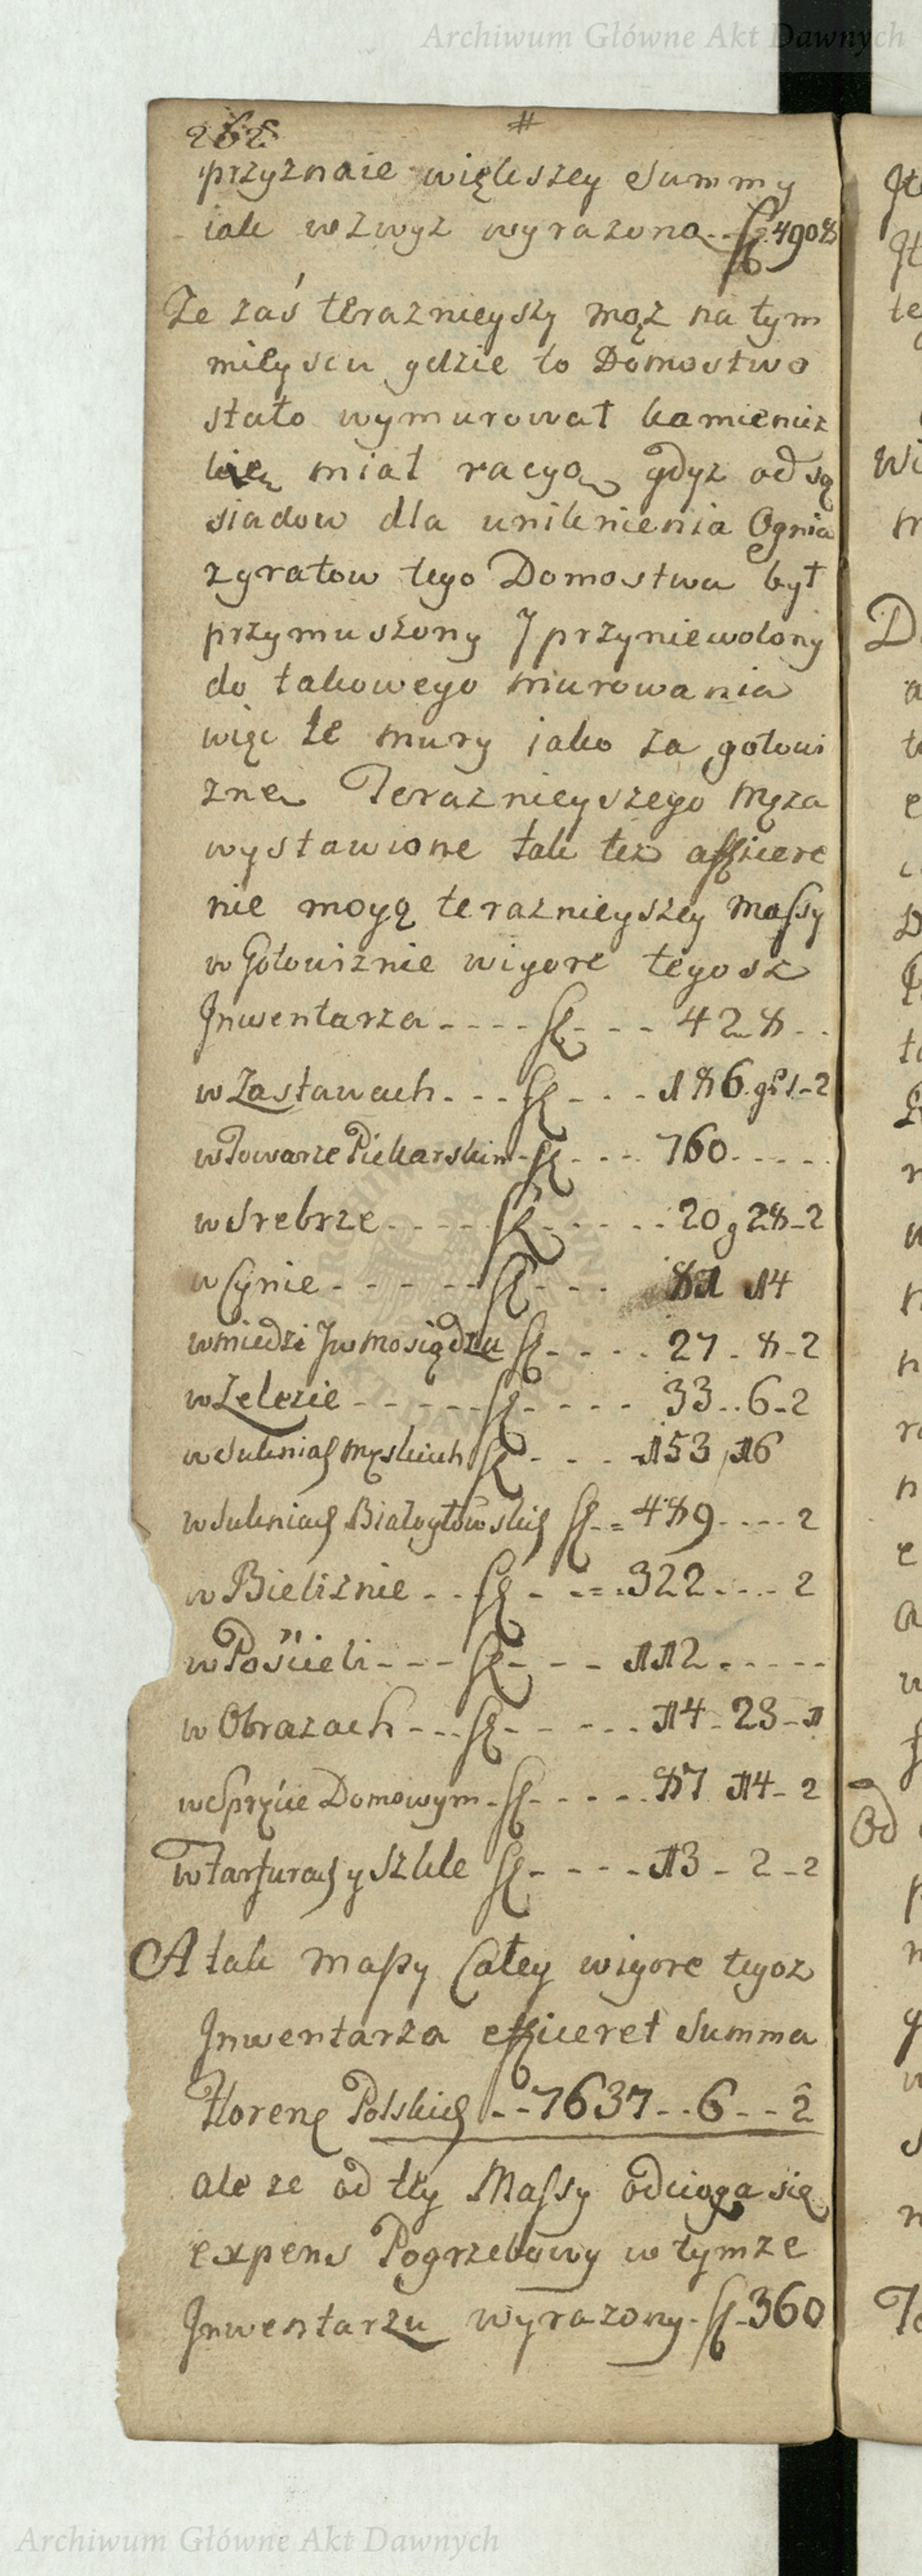 Archiwum Główne Akt Dawnych
262 #
przyznaie większey Summy
iak wzwyz wyrazono .. fl. 4908
Ze zaś teraznieyszy mąz na tym
mieyscu gdzie to Domostwo
stało wymurował kamienicz
kię miał racyą gdyz od są
siadow dla uniknienia Ognia
z gratow tego Domostwa był
przymuszony J przyniewolony
do takowego murowania
więc te mury jako za gotowi
znę Teraznieyszego Męza
wystawione tak tez afficere
nie mogą teraznieyszey Massy
w Gotowiznie wigore tegosz
Jnwentarza - - - - fl - - - 428 . .
w Zastawach - - - fl - - - 186 gr 1 - 2
w Towarze Piekarskim - fl - - - 760 - - - -
w Srebrze - - - - fl - - - - - 20 g 28 - 2
w Cynie - - - - - - fl - - - 81 14
w miedzi J w mosiądzu fl - - - - 27 - 8 - 2
w Zelezie - - - - - fl - - - - 33 . . 6 - 2
w Sukniach Męskich fl - - - - 153 16
w Sukniach Białogłowskich fl - - 489 - - - - 2
w Bieliznie - - fl - - - 322 - - - - 2
w Pościeli - - - fl - - - 112 - - - - -
w Obrazach - - - fl - - - - - 14 - 23 - 1
w Sprzęcie Domowym - fl - - - - - 87 14 - 2
w Farfurach y Szkle fl - - - - 13 - 2 - 2
A tak massy Całey wigore tegoz
Jnwentarza efficeret Summa
Floren Polskich - - 7637 - - 6 - - 2
ale ze od tey Massy odciąga się
expens Pogrzebowy w tymze
Jnwentarzu wyrazony - fl - 360
Archiwum Główne Akt Dawnych